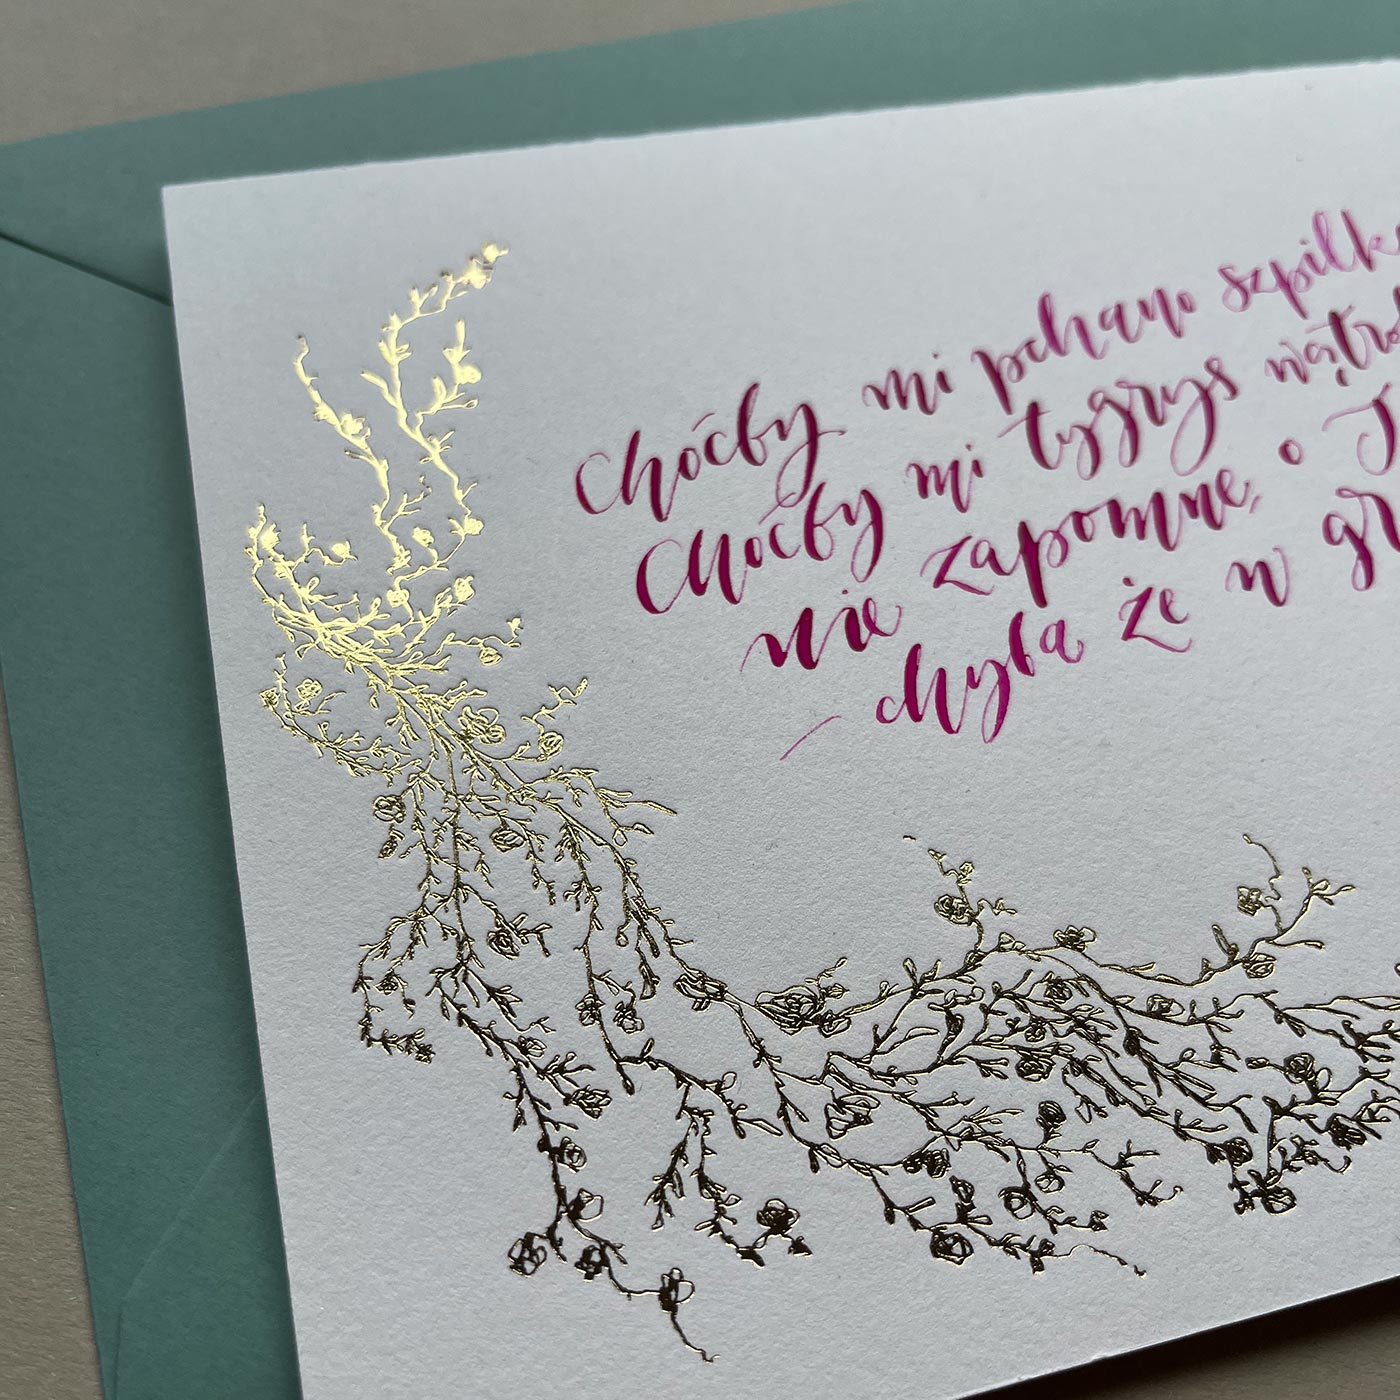 Choćby mi pchano szpilk
Choćby mi tygrys wątro
nie zapomnę, o J
chyba że w gr